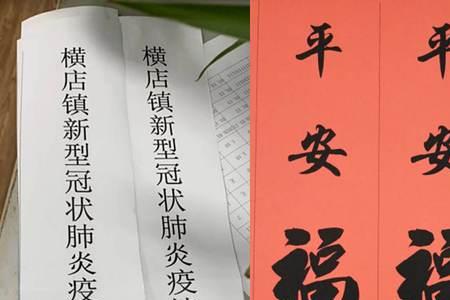 横店镇新型冠状肺炎疫
横店镇新型冠状肺炎疫
平安福
平安福